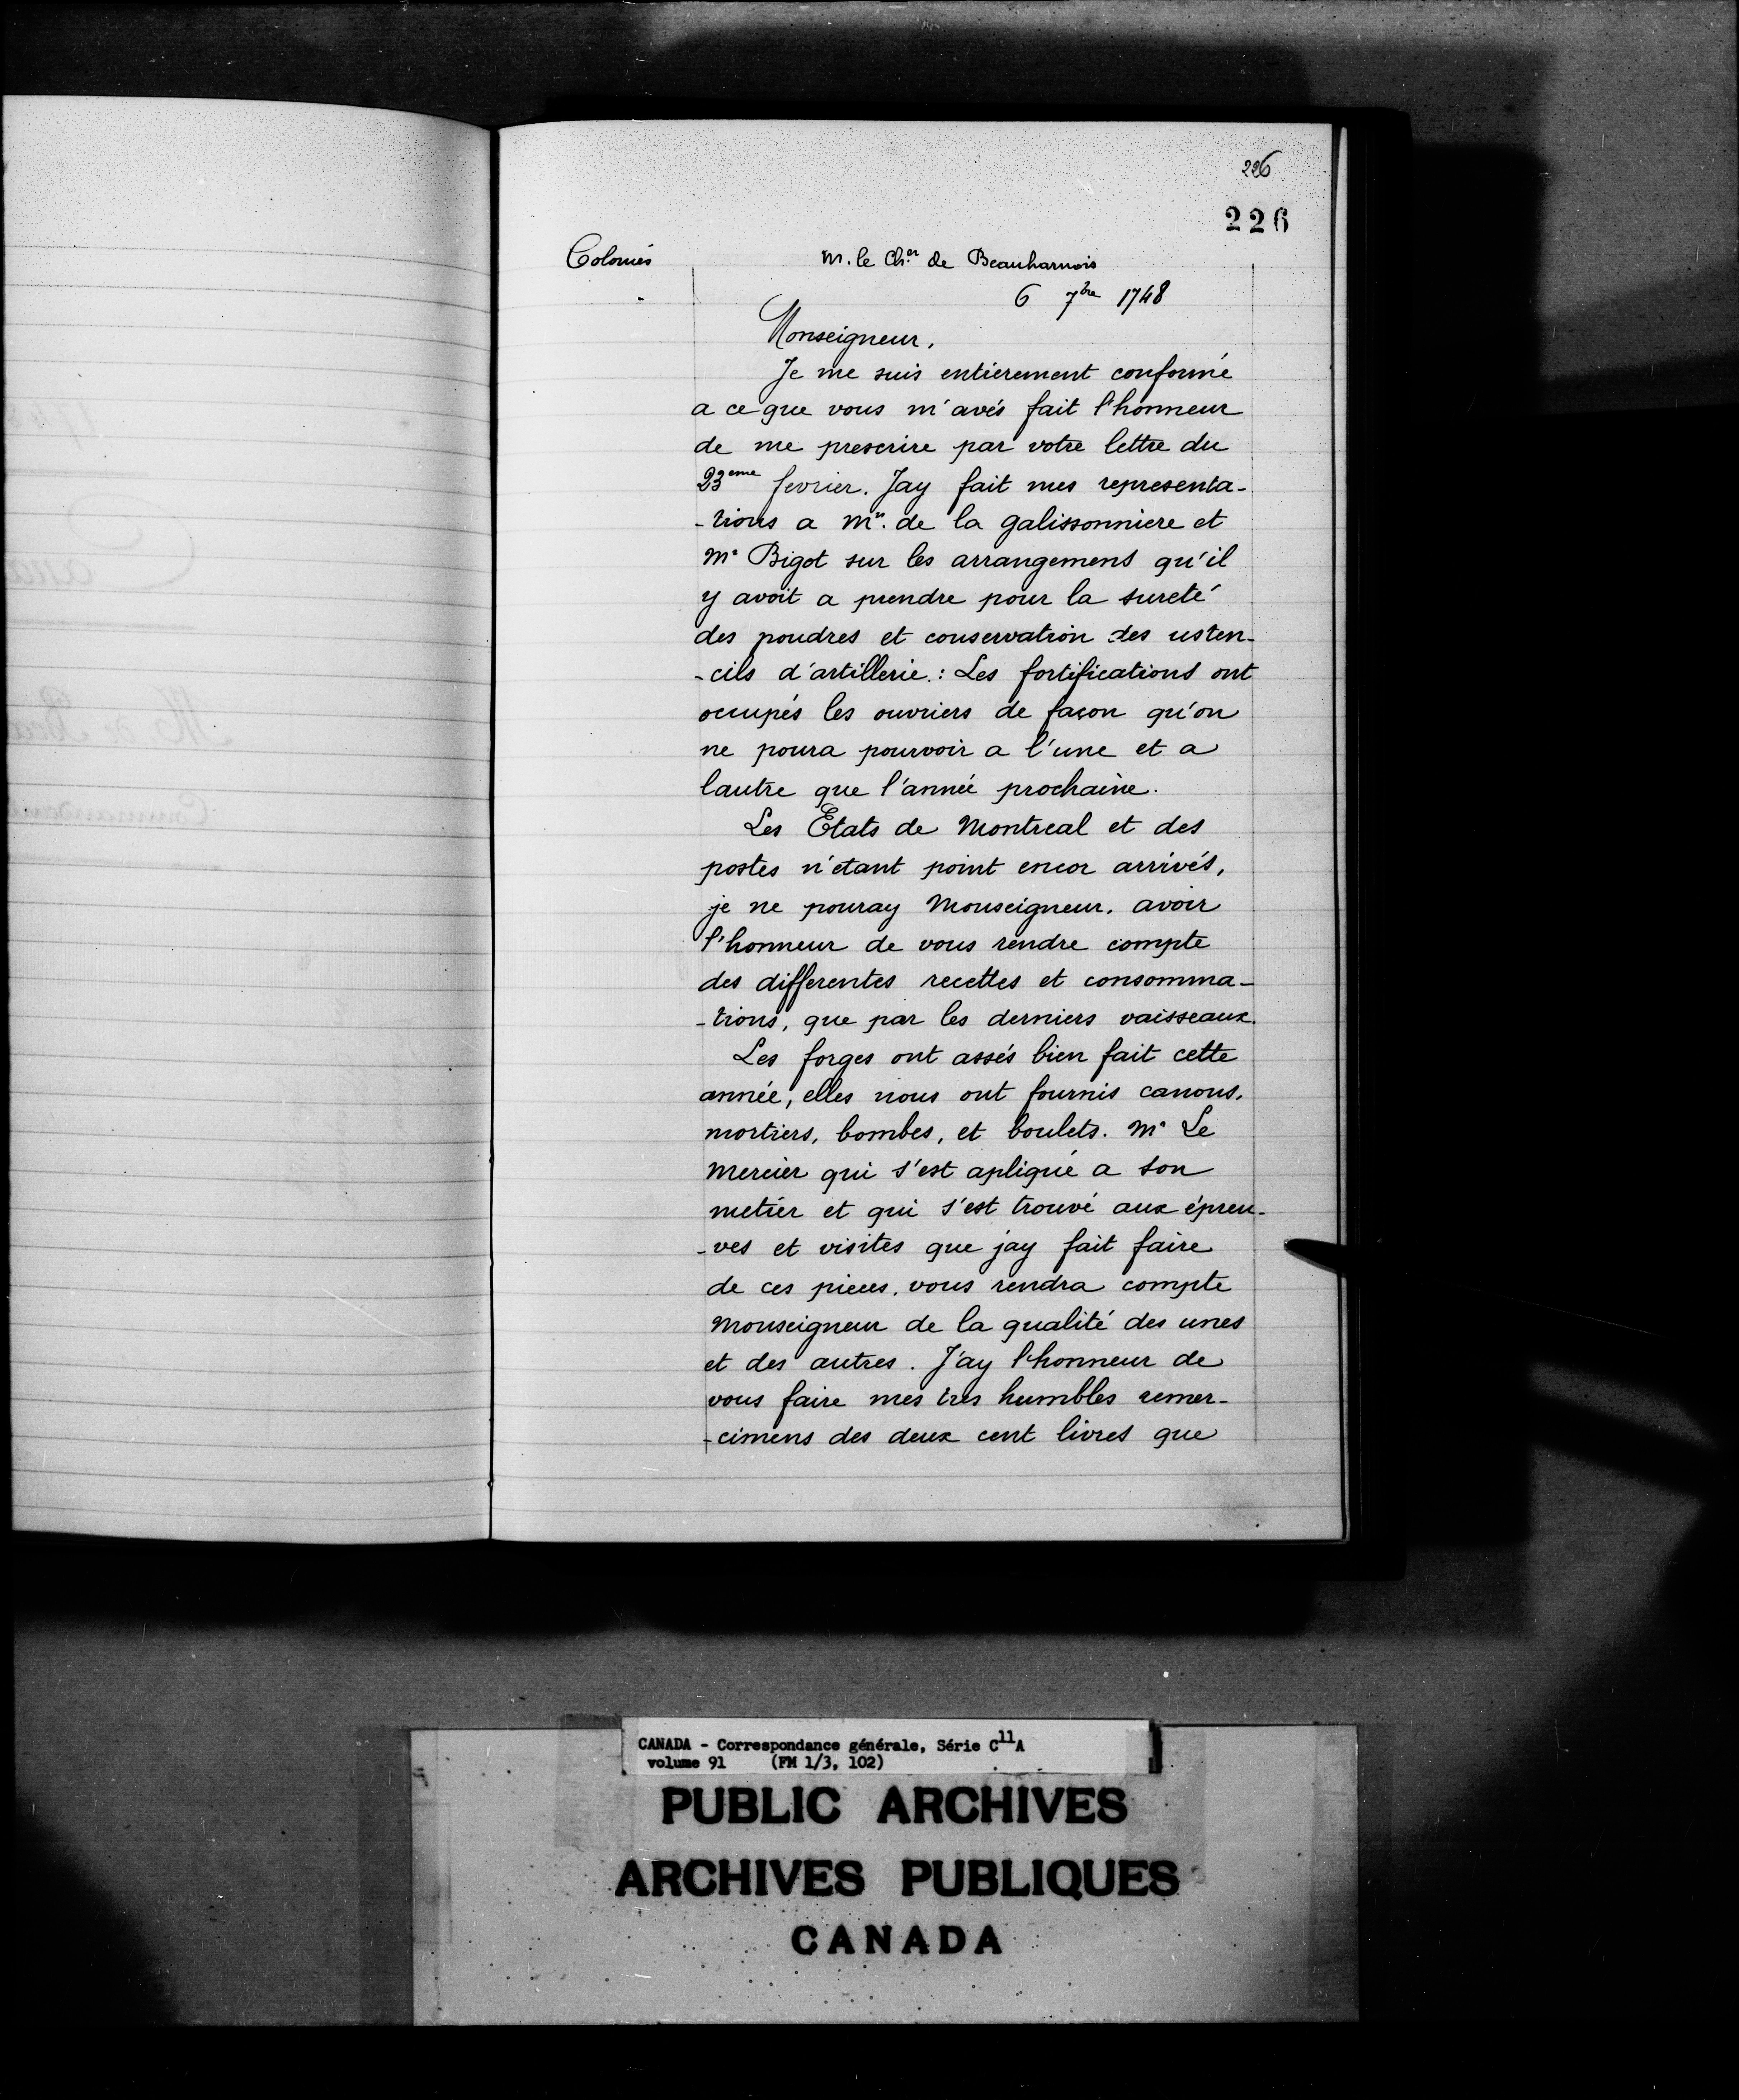 226
226
Colonies
M. le Ch.er de Beauharnois
6 7bre 1748
Monseigneur,
Je me suis entièrement conformé
a ce que vous m'avés fait l'honneur
de me prescrire par votre lettre du
23eme fevrier. Jay fait mes representa-
-tions a Mr. de la galissonniere et
Mr Bigot sur les arrangemens qu'il
y avoit a prendre pour la sureté
des poudres et conservation des usten-
-cils d'artillerie : Les fortifications ont
occupés les ouvriers de façon qu'on
ne poura pourvoir a l'une et a
lautre que l'année prochaine.
Les Etats de Montreal et des
postes n'etant point encor arrivés,
je ne pouray Monseigneur, avoir
l'honneur de vous rendre compte
des differentes recettes et consomma-
-tions, que par les derniers vaisseaux.
Les forges ont assés bien fait cette
année, elles nous ont fournis canons,
mortiers, bombes, et boulets. Mr Le
Mercier qui s'est apliqué a son
metier et qui s'est trouvé aux épreu-
-ves et visites que jay fait faire
de ces pieces, vous rendra compte
Monseigneur de la qualité des unes
et des autres. J'ay l'honneur de
vous faire mes tres humbles remer-
-cimens des deux cent livres que
CANADA - Correspondance générale, Série C11A
volume 91 (FM 1/3, 102)
PUBLIC ARCHIVES
ARCHIVES PUBLIQUES
CANADA